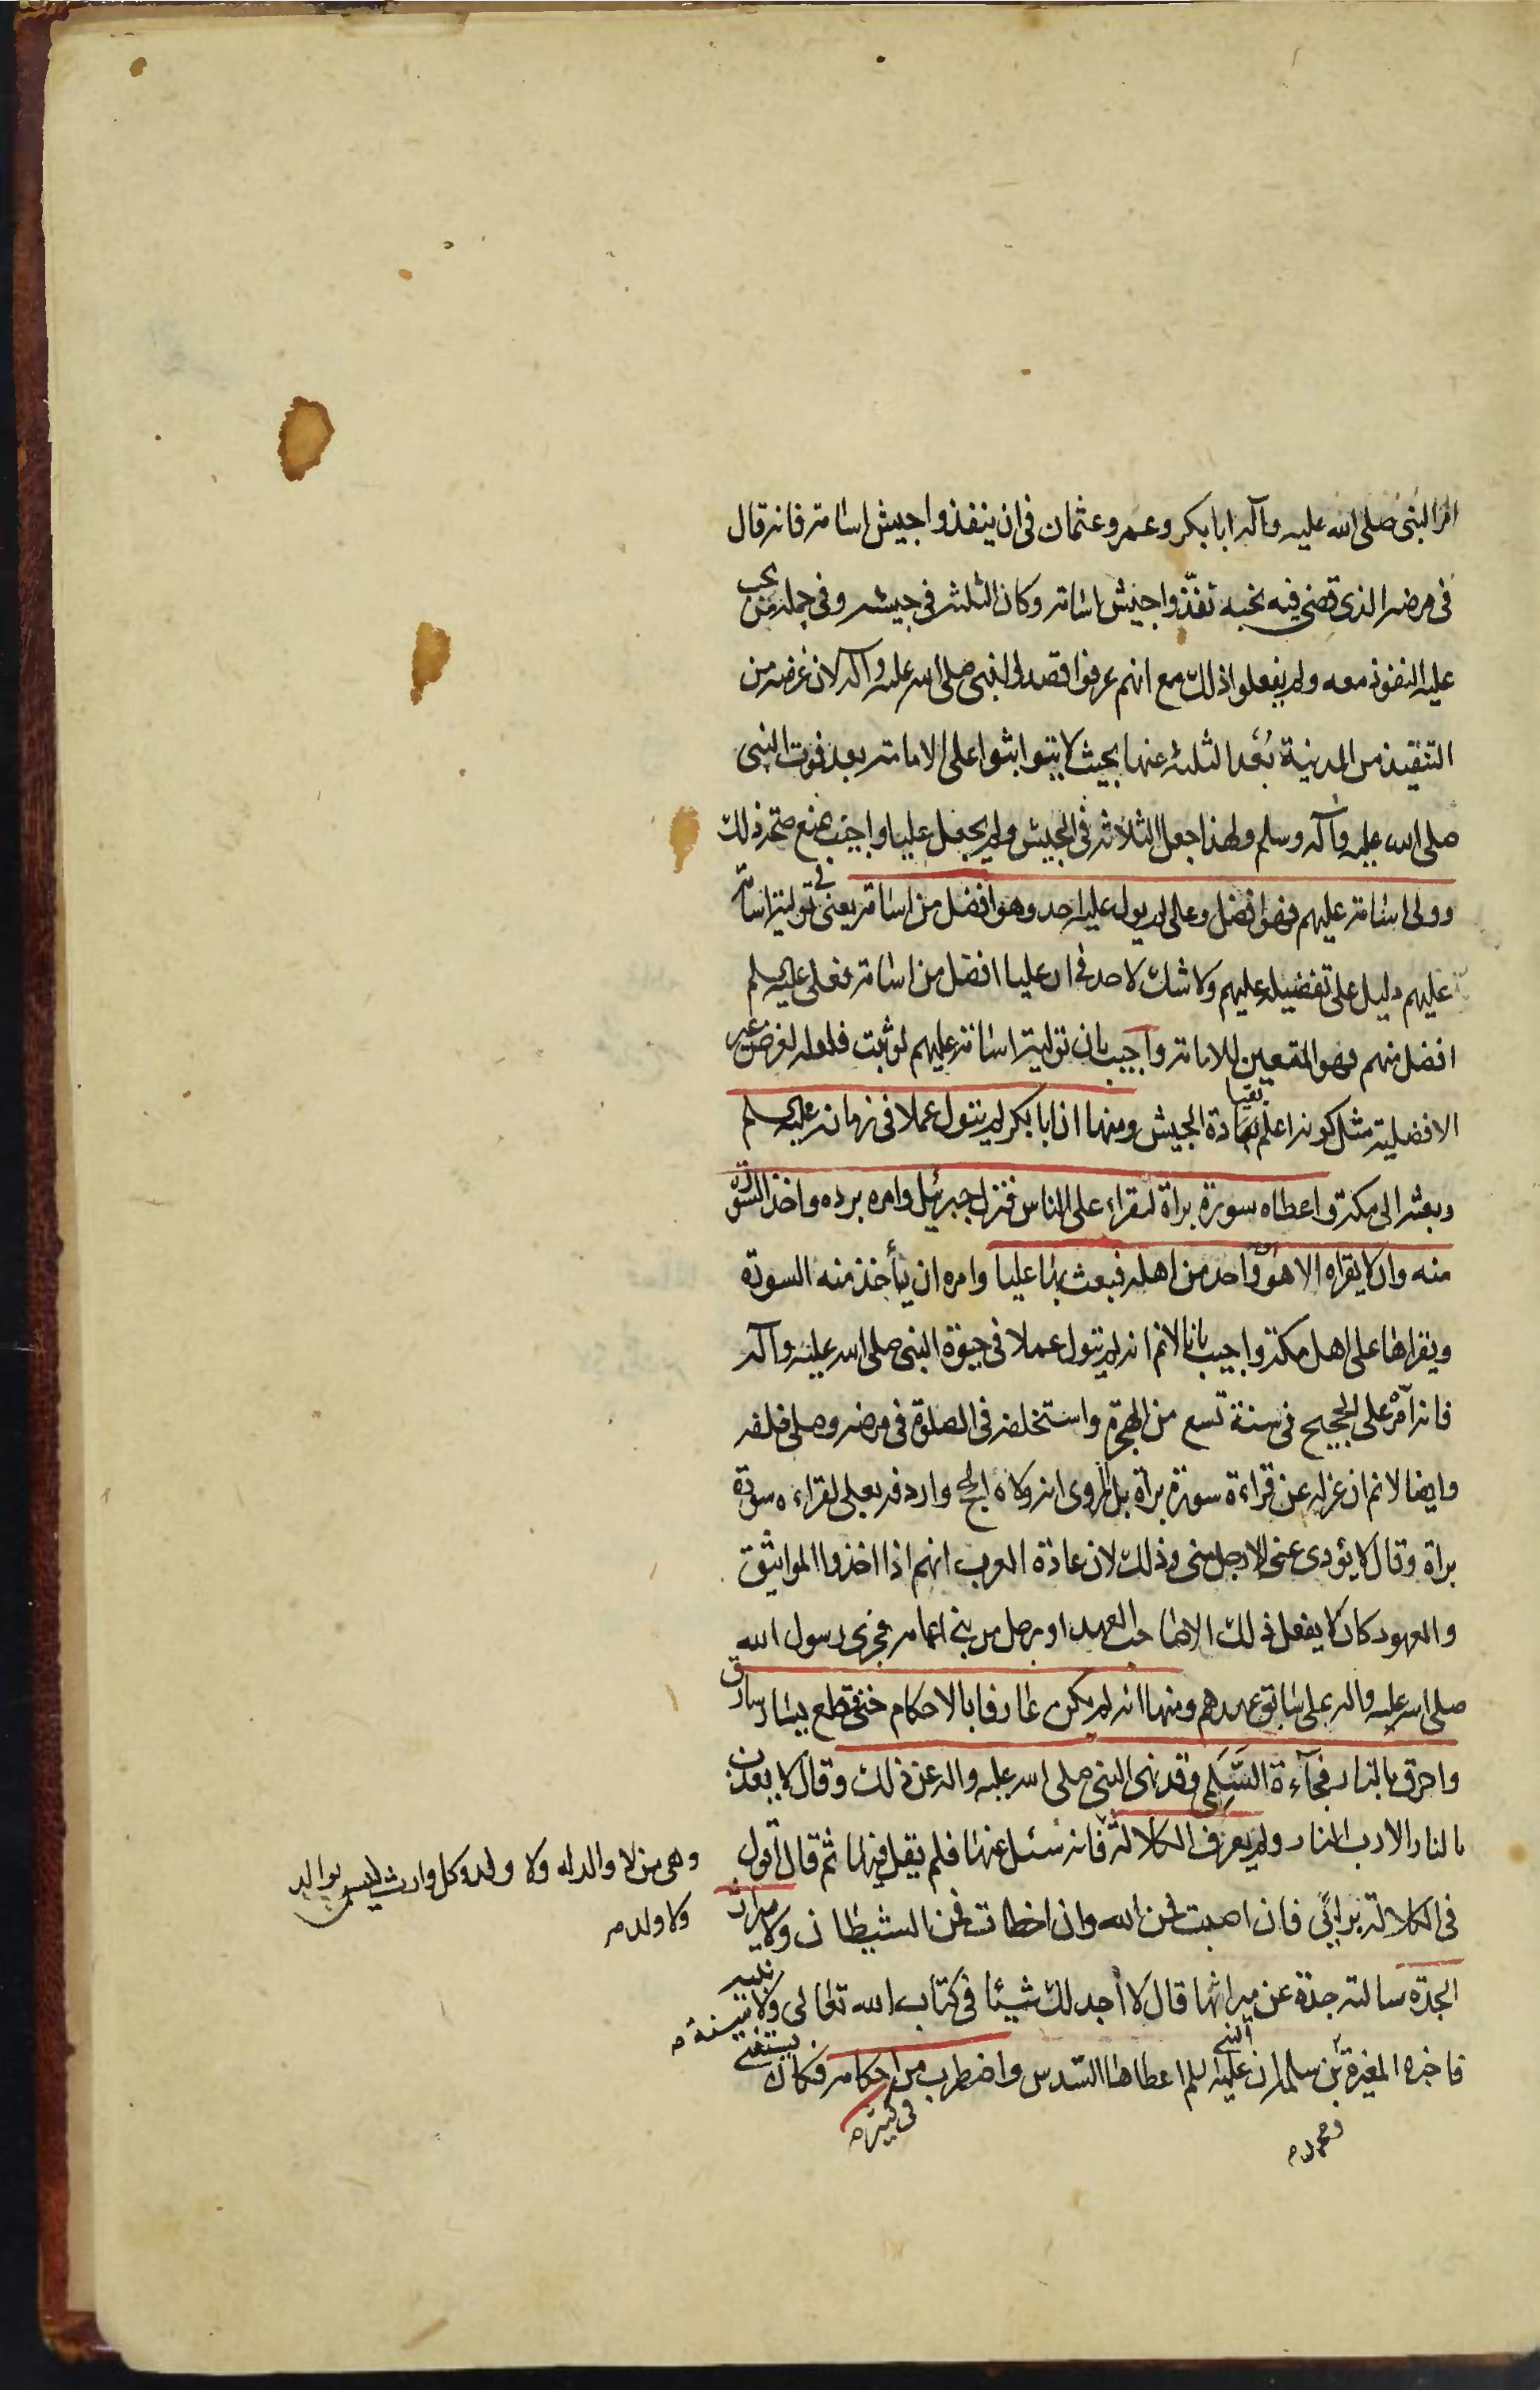 امر النبى صلى الله عليه وآله ابا بكر وعمر وعثمان فى ان ينفذوا جيش اسامة فانه قال
فى مرضه الذى قضى فيه نحبه نفّذوا جيش اسامة وكان الثلثة فى جيشه وفى جملة من يجب
عليه النفوذ معه ولم يفعلوا ذلك مع انهم عرفوا قصد النبى صلى الله عليه وآله لان غرضه من
التنفيذ من المدينة بُعْد الثلثة عنها بحيث لا يتواثبوا على الامامة بعد فوت النبى
صلى الله عليه وآله وسلم ولهذا جعل الثلاثة فى الجيش ولم يجعل عليا واجيب بمنع صحة ذلك
وولى اسامة عليهم فهو افضل وعلى لم يول عليه احد وهو افضل من اسامة يعنى فى تولية اسامة
عليهم دليل على تفضيله عليهم ولا شك لاحد فى ان عليا افضل من اسامة فعلى عليه السلم
افضل منهم فهو المتعين للامامة واجيب بان تولية اسامة عليهم لو ثبت فلعله لغرض غير
الافضلية مثل كونه اعلم بقيادة الجيش ومنها ان ابا بكر لم يتول عملا فى زمانه عليه السلم
وبعثه الى مكة واعطاه سورة براة ليقراء على الناس فنزل جبرئيل وامره برده واخذ السورة
منه وان لا يقراه الا هو او واحد من اهله فبعث بها عليا وامره ان يأخذ منه السورة
ويقراها على اهل مكة واجيب بانا لانم انه لم يتول عملا فى حيوة النبى صلى الله عليه وآله
فانه امّره على الحجيج فى سنة تسع من الهجرة واستخلفه فى الصلوة فى مرضه وصلى خلفه
وايضا لانم ان عزله عن قراءة سورة براة بل المروى انه ولاه الحج واردفه بعلى لقراءة سورة
براة وقال لا يؤدى عنى الا رجل منى وذلك لان عادة العرب انهم اذا اخذوا المواثيق
والعهود كان لا يفعل ذلك الا صاحب العهد او رجل من بنى اعمامه فجرى رسول الله
صلى الله عليه واله على سابق عهدهم ومنها انه لم يكن عارفا بالاحكام حتى قطع يسار سارق
واحرق بالنار فجآءة السَّلَمِى وقد نهى النبى صلى الله عليه واله عن ذلك وقال لا يعذب
بالنار الا رب النار ولم يعرف الكلالة فانه سئل عنها فلم يقل فيها ثم قال اقول
وهى من لا والد له ولا ولد وكل وارث ليس بوالد
ولا ولد م
فى الكلالة برائى فان اصبت فمن الله وان اخطات فمن الشيطان ولا ميراث
الجدة سالته جدة عن ميراثها قال لا أجد لك شيئا فى كتاب الله تعالى ولا
فاخبره المغيرة بن سلمة ان النبى عليه السلم اعطاها السدس واضطرب من احكامه فكان يستفتى
فى كثير م